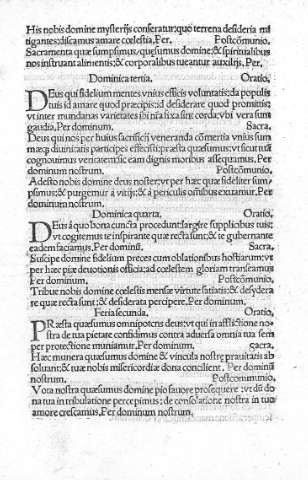 His nobis domine mysterijs conferatur: quo terrena desideria mi
tigantes: discamus amare cœlestia, Per. Postcōmunio,
Sacramenta quæ sumpsimus, quęsumus domine: & spiritualibus
nos instruant alimentis: & corporalibus tueantur auxilijs. Per.
Dominica tertia. Oratio,
Deus qui fidelium mentes vnius efficis voluntatis: da populis
tuis id amare quod præcipis: id desiderare quod promittis:
vt inter mundanas varietates ibi nr̄a fixa sint corda: vbi vera sunt
gaudia, Per dominum. Sacra,
Deus qui nos per huius sacrificij veneranda cōmertia vnius sum
mæq; diuinitatis participes effecisti: præsta quæsumus: vt sicut tuā
cognoscimus veritatem: sic eam dignis moribus assequamur, Per
dominum nostrum. Postcōmunio,
Adesto nobis domine deus noster: vt per hæc quæ fideliter sum
psimus: & purgemur a vitijs: & a periculis omnibus exuamur. Per
dominum nostrum.
Dominica quarta, Oratio,
Deus à quo bona cuncta procedunt: largire supplicibus tuis:
vt cogitemus te inspirante quæ recta sunt: & te gubernante
eadem faciamus, Per dominū. Sacra,
Suscipe domine fidelium preces cum oblationibus hostiarum: vt
per hæc piæ deuotionis officia: ad cœlestem gloriam transeamus
Per dominum. Postcōmunio,
Tribue nobis domine cœlestis mensæ virtute satiatis: & desydera
re quæ recta sunt: & desiderata percipere, Per dominum.
Feria secunda. Oratio,
Præsta quæsumus omnipotens deus: vt qui in afflictione no
stra de tua pietate confidimus contra aduersa omnia tua sem
per protectione muniamur. Per dominum, Sacra,
Hæc munera quæsumus domine & vincula nostrę prauitatis ab
soluant: & tuæ nobis misericordiæ dona concilient. Per dominū
nostrum, Postcommunio,
Vota nostra quæsumus domine pio fauore prosequere: vt dū do
na tua in tribulatione percepimus: de consolatione nostra in tuo
amore crescamus. Per dominum nostrum.